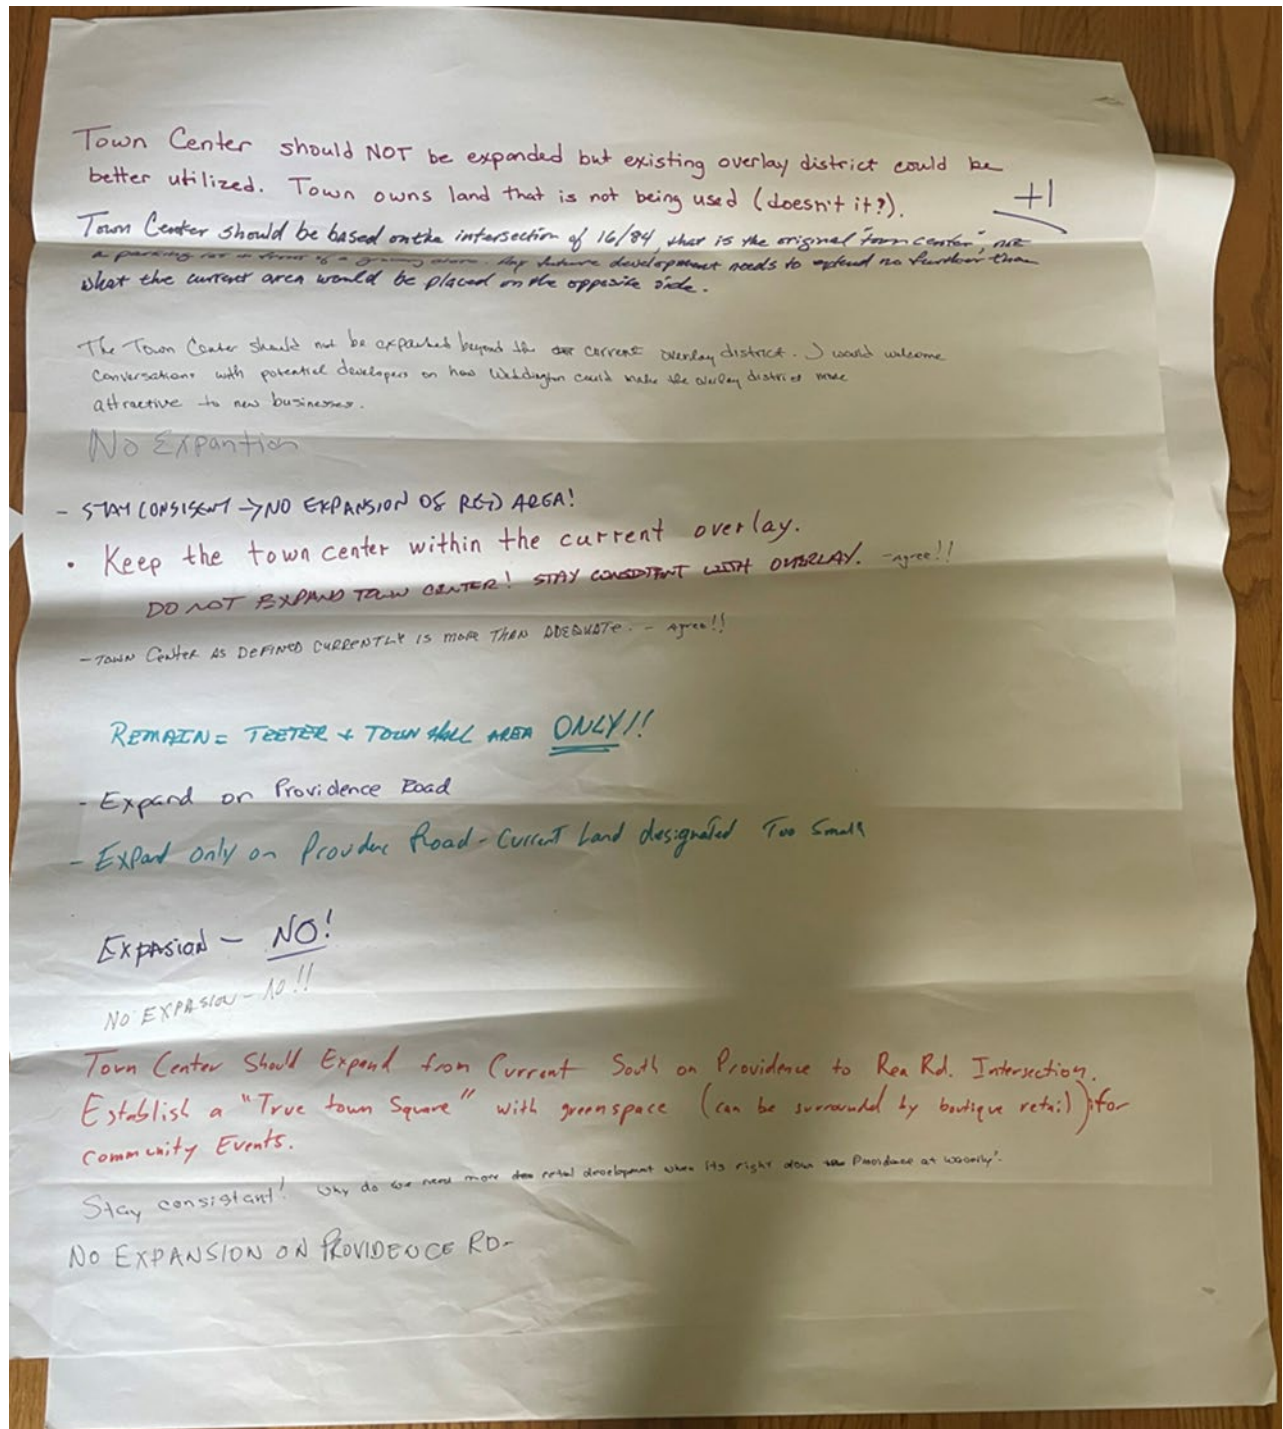 Town Center should NOT be expanded but existing overlay district could be
better utilized. Town owns land that is not being used (doesn't it?).
+1
Town Center should be based on the intersection of 16/84, that is the original "town center", not
a parking lot in front of a grocery store. Any future development needs to extend no further than
what the current area would be placed on the opposite side.
The Town Center should not be expanded beyond the current overlay district. I would welcome
conversations with potential developers on how Weddington could make the overlay district more
attractive to new businesses.
No Expantion
- STAY CONSISENT → NO EXPANSION OF RED AREA!
• Keep the town center within the current overlay.
DO NOT EXPAND TOWN CENTER! STAY CONSISTENT WITH OVERLAY. - agree!!
- TOWN Center AS DEFINED CURRENTLY IS MORE THAN ADEQUATE. - Agree!!
REMAIN = TEETER + TOWN HALL AREA ONLY!!
- Expand on Providence Road
- Expand only on Providenc Road - Current Land designated Too Small
EXPASION - NO!
NO EXPASION - NO!!
Town Center Should Expand from Current South on Providence to Rea Rd. Intersection.
Establish a "True town Square" with greenspace (can be surrounded by boutique retail) for
Community Events.
Stay consistant! Why do we need more retail development when its right down Providence at Waverly?
NO EXPANSION ON PROVIDENCE RD-